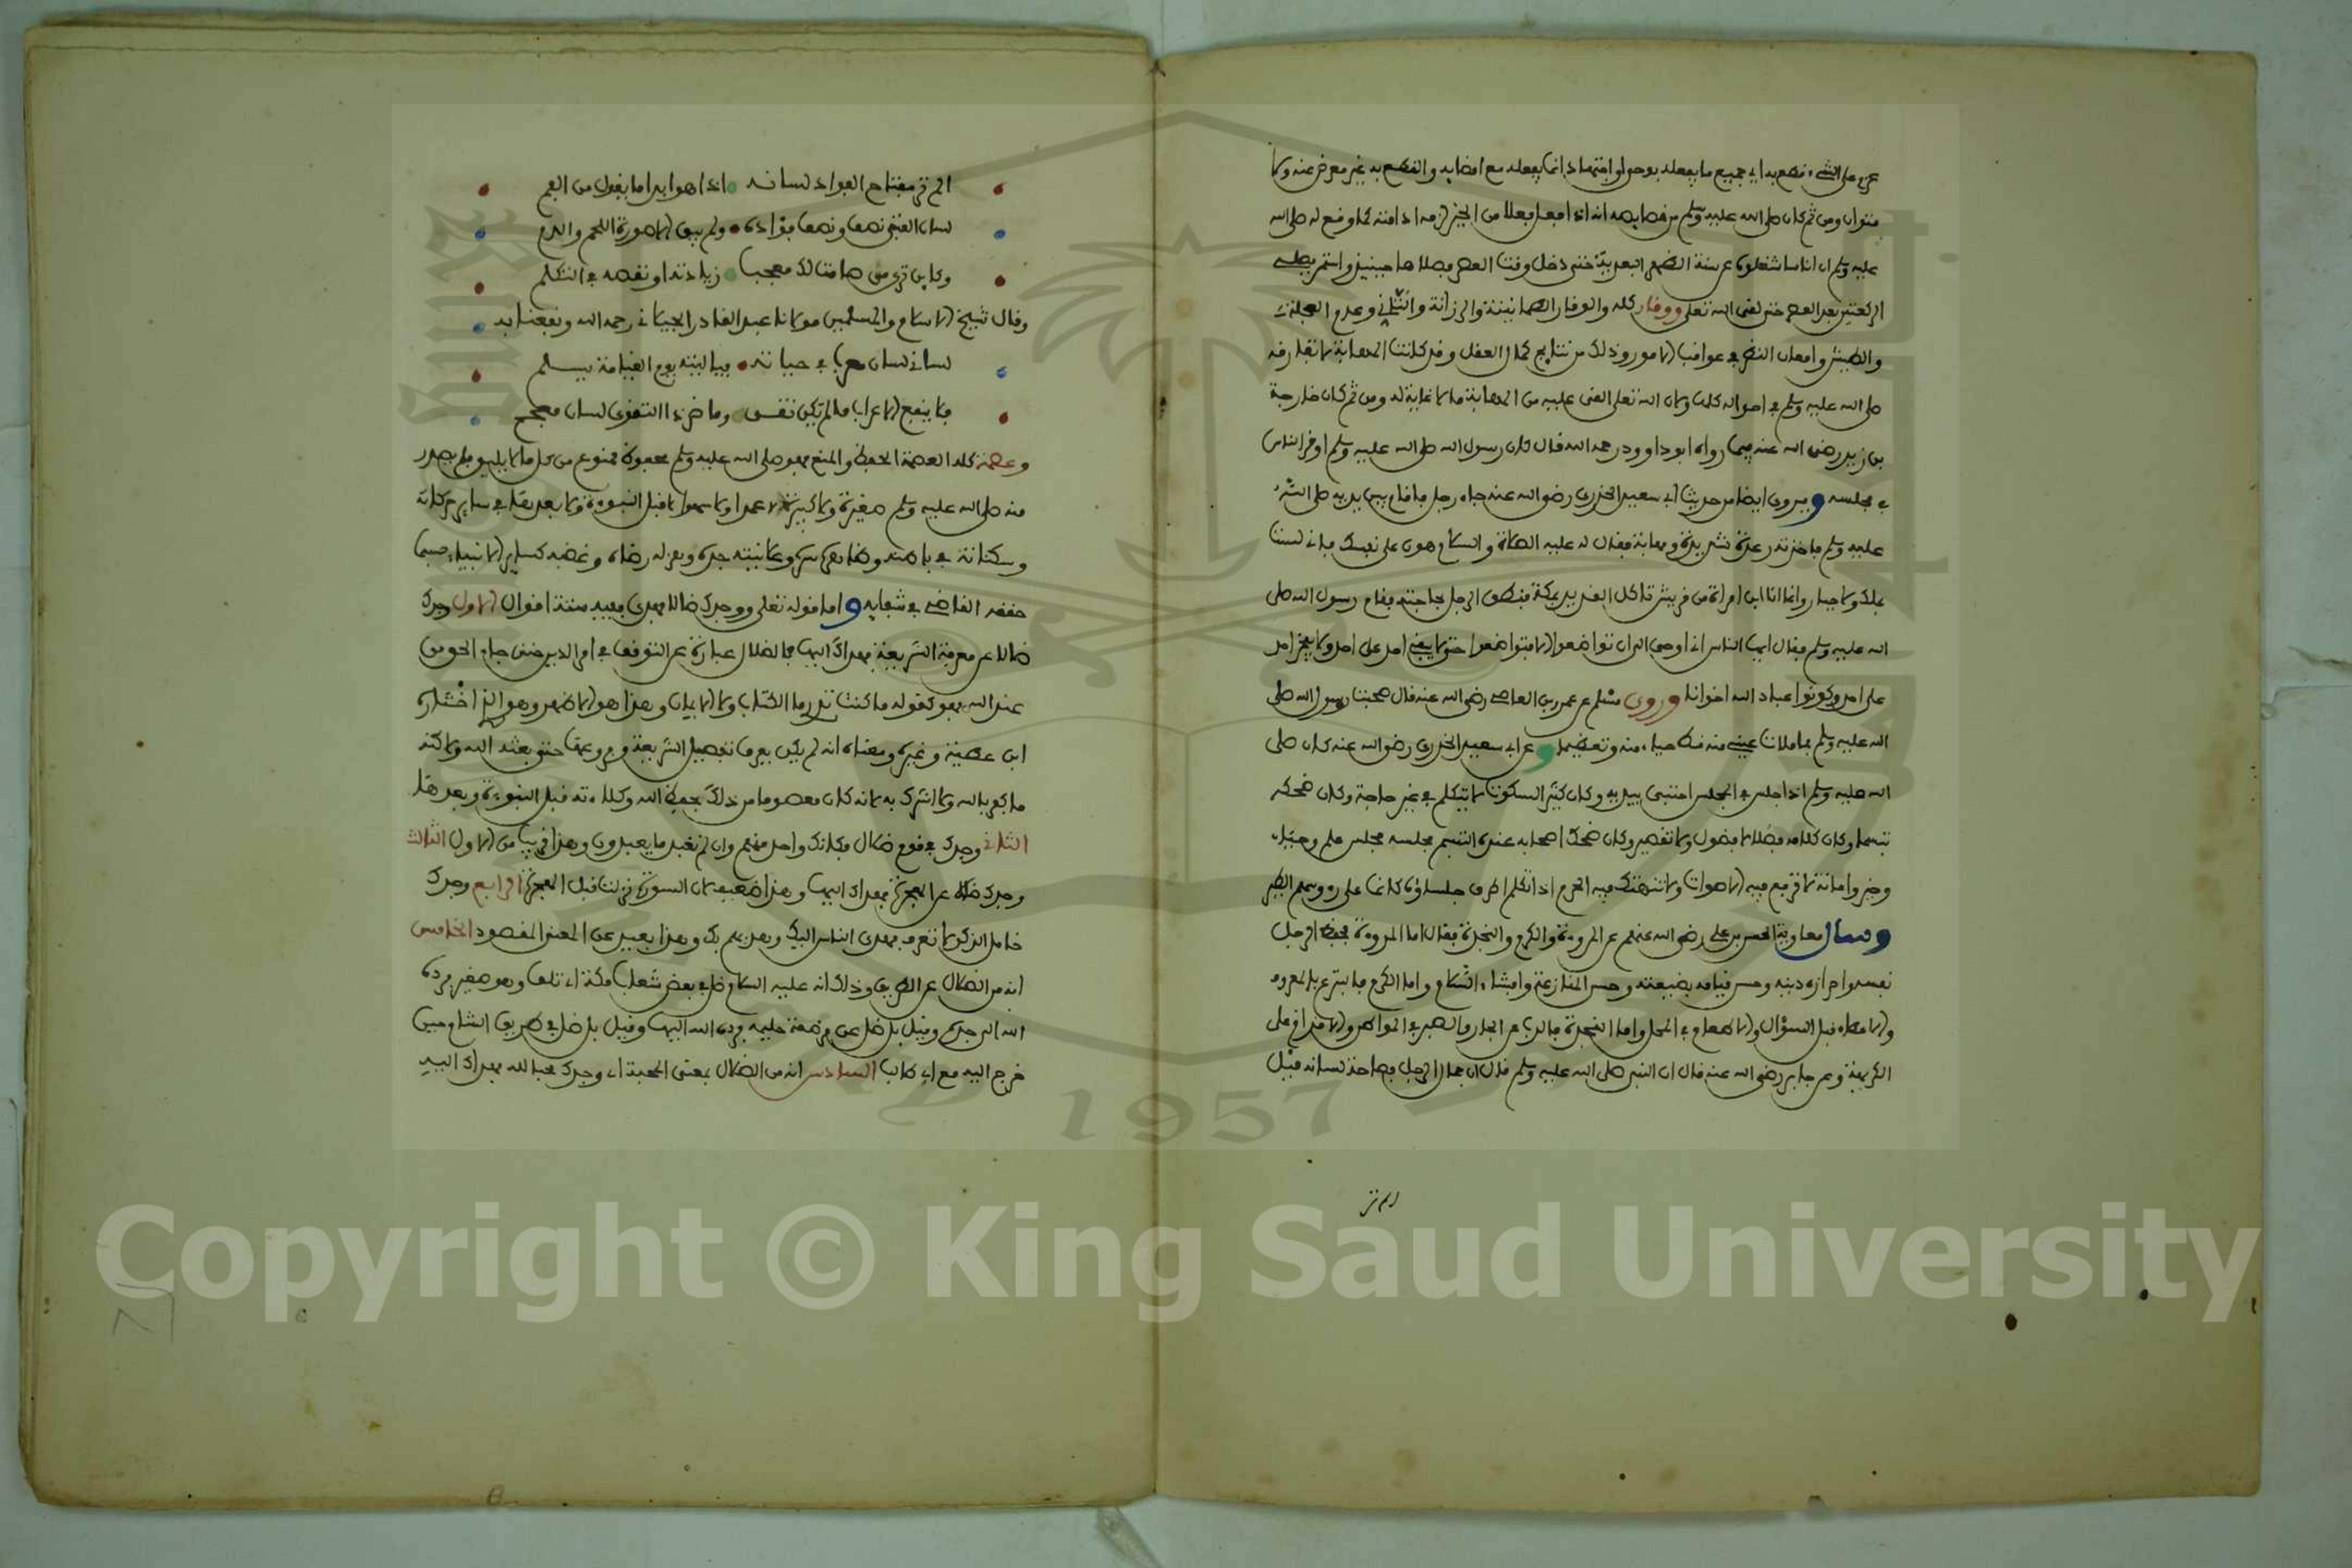 عزم على الشيء قطع به اي جميع ما يفعله بوحي او اجتهاد انما يفعله مع امضايه والقطع به غير معرض عنه ولا
متوان ومن ثم كان صلى الله عليه وسلم من خصايصه انه اذا فعل فعلا من الخير لزمه ادامته كما وقع له صلى الله
عليه وسلم ان اناسا شغلوه عن سنة الظهر البعدية حتى دخل وقت العصر فصلاها حينيذ واستمر يصلي
الركعتين بعد العصر حتى لقي الله تعلى ووقار كله والوقار الطمانينة والرزانة والتاني وعدم العجلة
والطيش وامعان النظر في عواقب الامور وذلك من نتايج كمال العقل وقد كانت المهابة لا تفارقه
صلى الله عليه وسلم في احواله كلها ولان الله تعلى القى عليه من المهابة ما لا غاية له ومن ثم كان خارجة
بن زيد رضي الله عنه فيما رواه ابو داوود رحمه الله قال كان رسول الله صلى الله عليه وسلم اوقر الناس
في مجلسه وفيروى ايضا من حديث ابي سعيد الخدري رضي الله عنه جاء رجل فقام بين يديه صلى الله
عليه وسلم فاخذته رعدة شديدة ومهابة فقال له عليه الصلاة والسلام هون على نفسك فاني لست
بملك ولا جبار وانما انا ابن امراة من قريش تاكل القديد بمكة فنطق الرجل بحاجته فقام رسول الله صلى
الله عليه وسلم فقال ايها الناس اني اوحي الي ان تواضعوا الا فتواضعوا حتى لا يبغي احد على احد ولا يفخر احد
على احد وكونوا عباد الله اخوانا وروى مسلم عن عمرو بن العاصي رضي الله عنه قال صحبت رسول الله صلى
الله عليه وسلم ما ملات عيني منه قط حياء منه وتعظيما وعن ابي سعيد الخدري رضي الله عنه كان صلى
الله عليه وسلم اذا جلس في المجلس احتبى بيديه وكان كثير السكوت لا يتكلم في غير حاجة وكان ضحكه
تبسما وكان كلامه فصلا لا فضول ولا تقصير وكان ضحك اصحابه عنده التبسم مجلسه مجلس حلم وحياء
وخير وامانة لا ترفع فيه الاصوات ولا تنتهك فيه الحرم اذا تكلم اطرق جلساؤه كانما على رءوسهم الطير
وسال معاوية الحسن بن علي رضي الله عنهم عن المروءة والكرم والنجدة فقال اما المروءة فحفظ الرجل
نفسه واحرازه دينه وحسن قيامه بضيعته وحسن المنازعة وافشاء السلام واما الكرم فالتبرع بالمعروف
والاعطاء قبل السؤال والاطعام في المحل واما النجدة فالذب عن الجار والصبر في المواطن والاقدام على
الكريهة وعن جابر رضي الله عنه قال ان النبي صلى الله عليه وسلم قال ان جمال الرجل فصاحة لسانه قيل
الم تر
الم تر مفتاح الفواد لسانه اذا هو ابدى ما يقول من الفم
لسان الفتى نصف ونصف فؤاده ولم يبق الا صورة اللحم والدم
وكاين ترى من صامت لك معجب زيادته او نقصه في التكلم
وقال شيخ الاسلام والمسلمين مولانا عبد القادر الجيلاني رحمه الله ونفعنا به
لساني لسان معرب في حياته فياليته يوم القيامة يسلم
فما ينفع الاعراب ما لم يكن تقى وما ضر ذا التقوى لسان معجم
وعصمة كله العصمة الحفظ والمنع فهو صلى الله عليه وسلم محفوظ ممنوع من كل ما لا يليق فلم يصدر
منه صلى الله عليه وسلم صغيرة ولا كبيرة لا عمدا ولا سهوا لا قبل النبوءة ولا بعدها في ساير حركاته
وسكناته في باطنه وظاهره سره وعلانيته جده وهزله رضاه وغضبه كساير الانبياء حسبما
حققه القاضي في شفايه واما قوله تعلى ووجدك ضالا فهدى ففيه ستة اقوال الاول وجدك
ضالا عن معرفة الشريعة فهداك اليها فالضلال عبارة عن التوقف في امر الدين حتى جاءه الحق من
عند الله فهو كقوله ما كنت تدري ما الكتاب ولا الايمان وهذا هو الاظهر وهو الذي اختاره
ابن عطية وغيره ومعناه انه لم يكن يعرف تفصيل الشريعة وفروعها حتى بعثه الله ولاكنه
ما كفر بالله ولا اشرك به لانه كان معصوما من ذلك بحفظ الله وكلاءته قبل النبوءة وبعدها
الثاني وجدك في قوم ضلال فكانك واحد منهم وان لم تعبد ما يعبدون وهذا قريب من الاول الثالث
وجدك ضالا عن الهجرة فهداك اليها وهذا ضعيف لان السورة نزلت قبل الهجرة الرابع وجدك
خامل الذكر لا تعرف فهدى الناس اليك وهداهم بك وهذا بعيد عن المعنى المقصود الخامس
انه من الضلال عن الطريق وذلك انه عليه السلام ضل في بعض شعاب مكة اي تلف وهو صغير فرده
الله الى جده وقيل بل ضل عن مرضعة حليمة فرده الله اليها وقيل بل ضل في طريق الشام حين
خرج اليه مع ابي طالب السادس انه من الضلال بمعنى المحبة اي وجدك محبا لله فهداك اليه
1957
Copyright © King Saud University